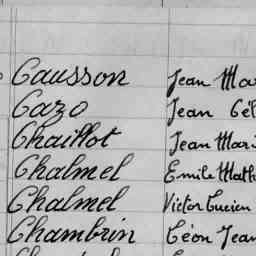 Causson Jean
Cazo Jean
Chaillot Jean
Chalmel Emile
Chalmel Victor Lucien
Chambrin Léon Jean